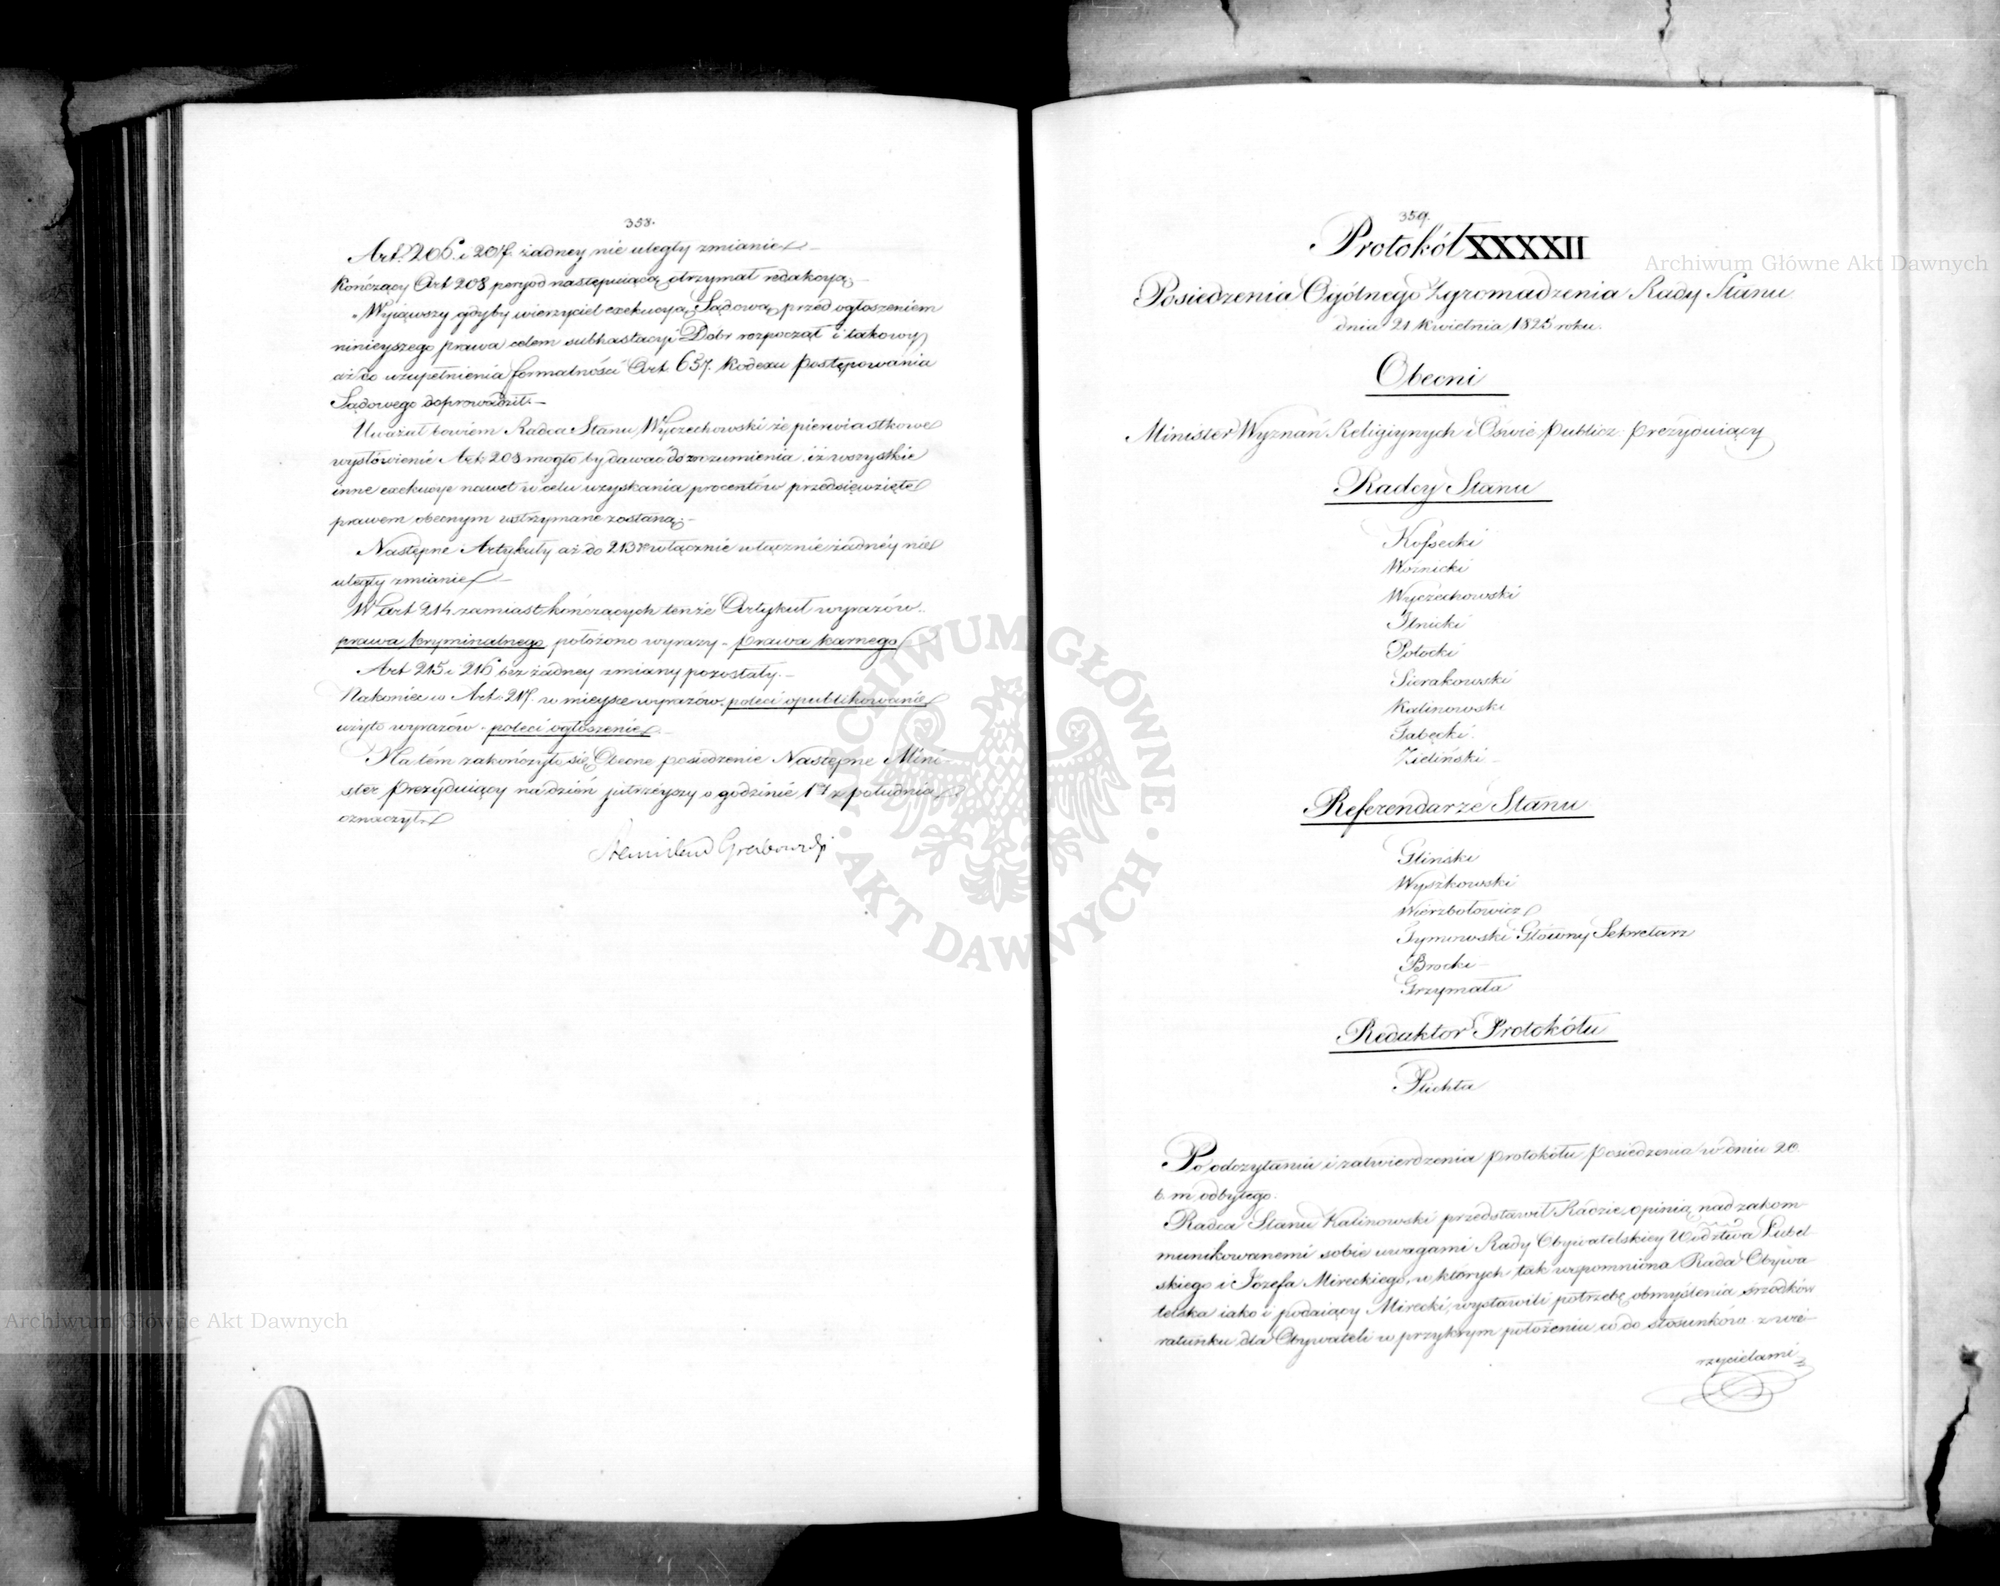 358.
Art. 206. i 207. żadney nie uległy zmianie. —
Kończący Art 208 peryod następuiącą otrzymał redakcyą —
„Wyiąwszy gdyby wierzyciel exekucyą Sądową przed ogłoszeniem
ninieyszego prawa celem subhastacyi Dóbr rozpoczął i takowy
aż do uzupełnienia formalności Art. 657. Kodexu Postępowania
Sądowego doprowadził. —
Uważał bowiem Radca Stanu Wyczechowski że pierwiastkowe
wysłowienie Art. 208 mogło by dawać do zrozumienia, iż wszystkie
inne exekucye nawet w celu uzyskania procentów przedsięwzięte
prawem obecnym wstrzymane zostaną. —
Następne Artykuły aż do 213go włącznie włącznie żadnéy nie
uległy zmianie —
W Art 214. zamiast kończących tenże Artykuł wyrazów „
prawa kryminalnego, położono wyrazy „ prawa karnego
Art 215 i 216 bez żadney zmiany pozostały. —
Nakoniec w Art. 217. w mieysce wyrazów, poleci opublikowanie
użyto wyrazów „ poleci ogłoszenie —
Na tém zakończyło się Obecne posiedzenie Następne Mini-
ster Prezyduiący na dzień jutrzéyszy o godzinie 1éy z południa
oznaczył.
Stanisław Grabowski
359.
Protokół XXXXII
Posiedzenia Ogólnego Zgromadzenia Rady Stanu
dnia 21 Kwietnia 1825 roku.
Obecni
Minister Wyznań Religiynych i Oświe: Publicz: Prezyduiący
Radcy Stanu
Kossecki
Woźnicki
Wyczechowski
Ilnicki
Potocki
Sierakowski
Kalinowski
Łabęcki
Zieliński —
Referendarze Stanu
Gliński
Wyszkowski
Wierzbołowicz
Tymowski Główny Sekretarz
Brocki —
Grzymała
Redaktor Protokółu
Plichta
Po odczytaniu i zatwierdzeniu protokółu posiedzenia w dniu 20.
b. m. odbytego.
Radca Stanu Kalinowski przedstawił Radzie opinią nad zakom-
munikowanemi sobie uwagami Rady Obywatelskiey Wództwa Lubel-
skiego i Józefa Mireckiego, w których tak wspomniona Rada Obywa-
telska iako i podaiący Mirecki, wystawili potrzebę obmyślenia śrzodków
ratunku dla Obywateli w przykrym położeniu, co do stosunków z wie-
rzycielami
Archiwum Główne Akt Dawnych
Archiwum Główne Akt Dawnych
ARCHIWUM GŁÓWNE · AKT DAWNYCH ·